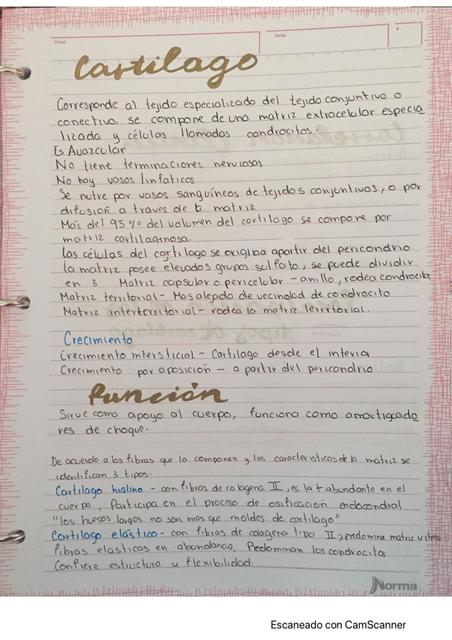 Cartilago
Corresponde al tejido especializado del tejido conjuntivo o
conectivo, se compone de una matriz extracelular especia
lizada y células llamadas condrocitos.
Es Avazcular
No tiene terminaciones nerviosas
No hay vasos linfaticos.
Se nutre por vasos sanguíneos de tejidos conjuntivos, o por
difusión a traves de la matriz
Más del 95 % del volumen del cartilago se compone por
matriz cartilaginosa.
Las células del cartilago se origina apartir del pericondrio
La matriz posee elevados grupos sulfato, se puede dividir
en 3 Matriz capsular o pericelular - anillo, rodea condrocito
Matriz territorial - Mas alejada de vecindad de condrocito
Matriz interterritorial - rodea la matriz territorial.
Crecimiento
Crecimiento intersticial - Cartilago desde el interior
Crecimiento por aposición - a partir del pericondrio
Función
Sirve como apoyo al cuerpo, funciona como amortiguado
res de choque.
De acuerdo a las fibras que la componen y las caracteristicas de la matriz se
identifican 3 tipos.
Cartilago hialino - con fibras de colagena II, es la + abundante en el
cuerpo, Participa en el proceso de osificación endocondral
"los huesos largos no son mas que moldes de cartilago"
Cartilago elástico - con fibras de colageno tipo II, predomina matriz
fibras elasticas en abundancia, Predominan los condrocitos
Confiere estructura y flexibilidad.
Norma
Escaneado con CamScanner